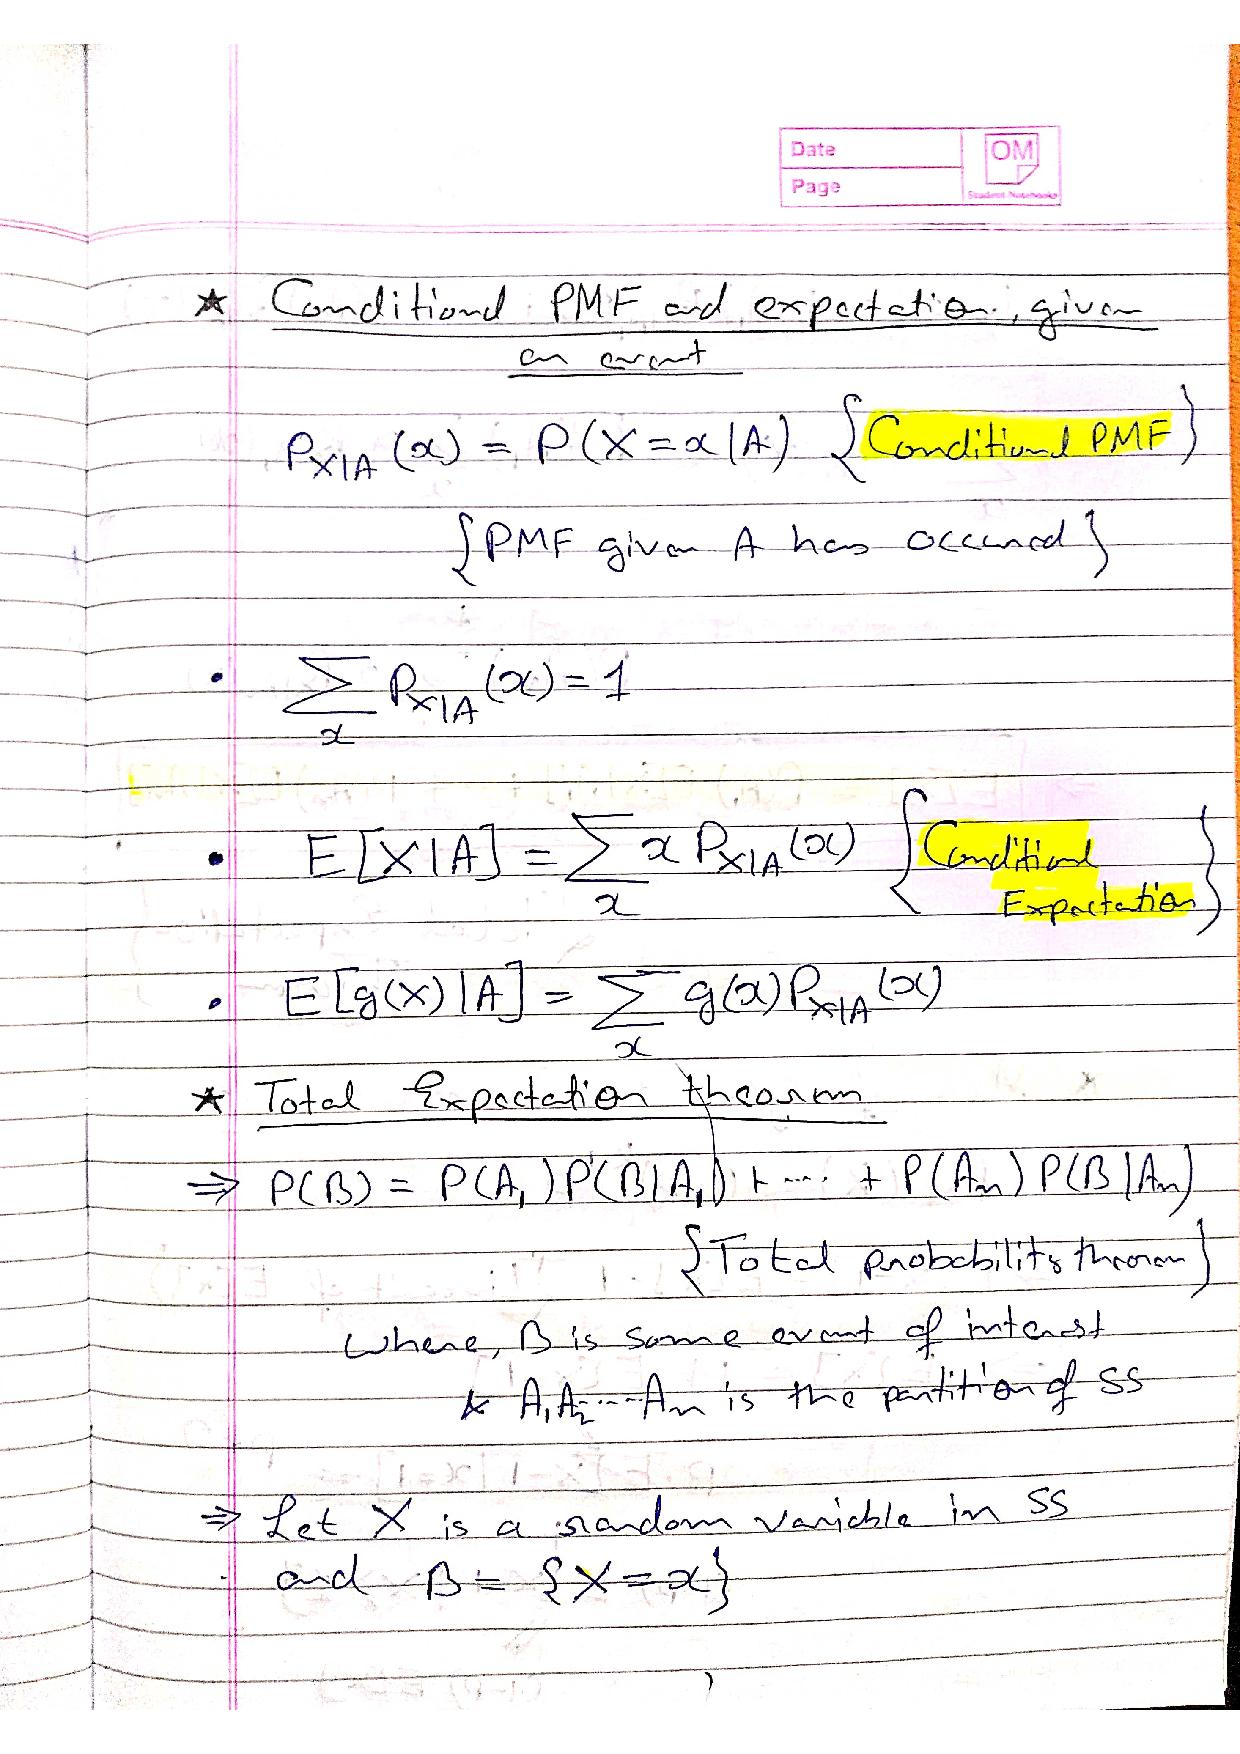 Date
OM
Page
Student Notebooks
★ Conditional PMF and expectation, given
an event
P_{X|A}(x) = P(X=x|A) {Conditional PMF}
{PMF given A has occured}
• ∑_x P_{X|A}(x) = 1
• E[X|A] = ∑_x x P_{X|A}(x) {Conditional
Expectation}
• E[g(X)|A] = ∑_x g(x) P_{X|A}(x)
★ Total Expectation theorem
⇒ P(B) = P(A₁)P(B|A₁) + ---- + P(Aₙ)P(B|Aₙ)
{Total probability theorem}
where, B is some event of interest
& A₁A₂---Aₙ is the partition of SS
⇒ Let X is a random variable in SS
and B = {X=x}